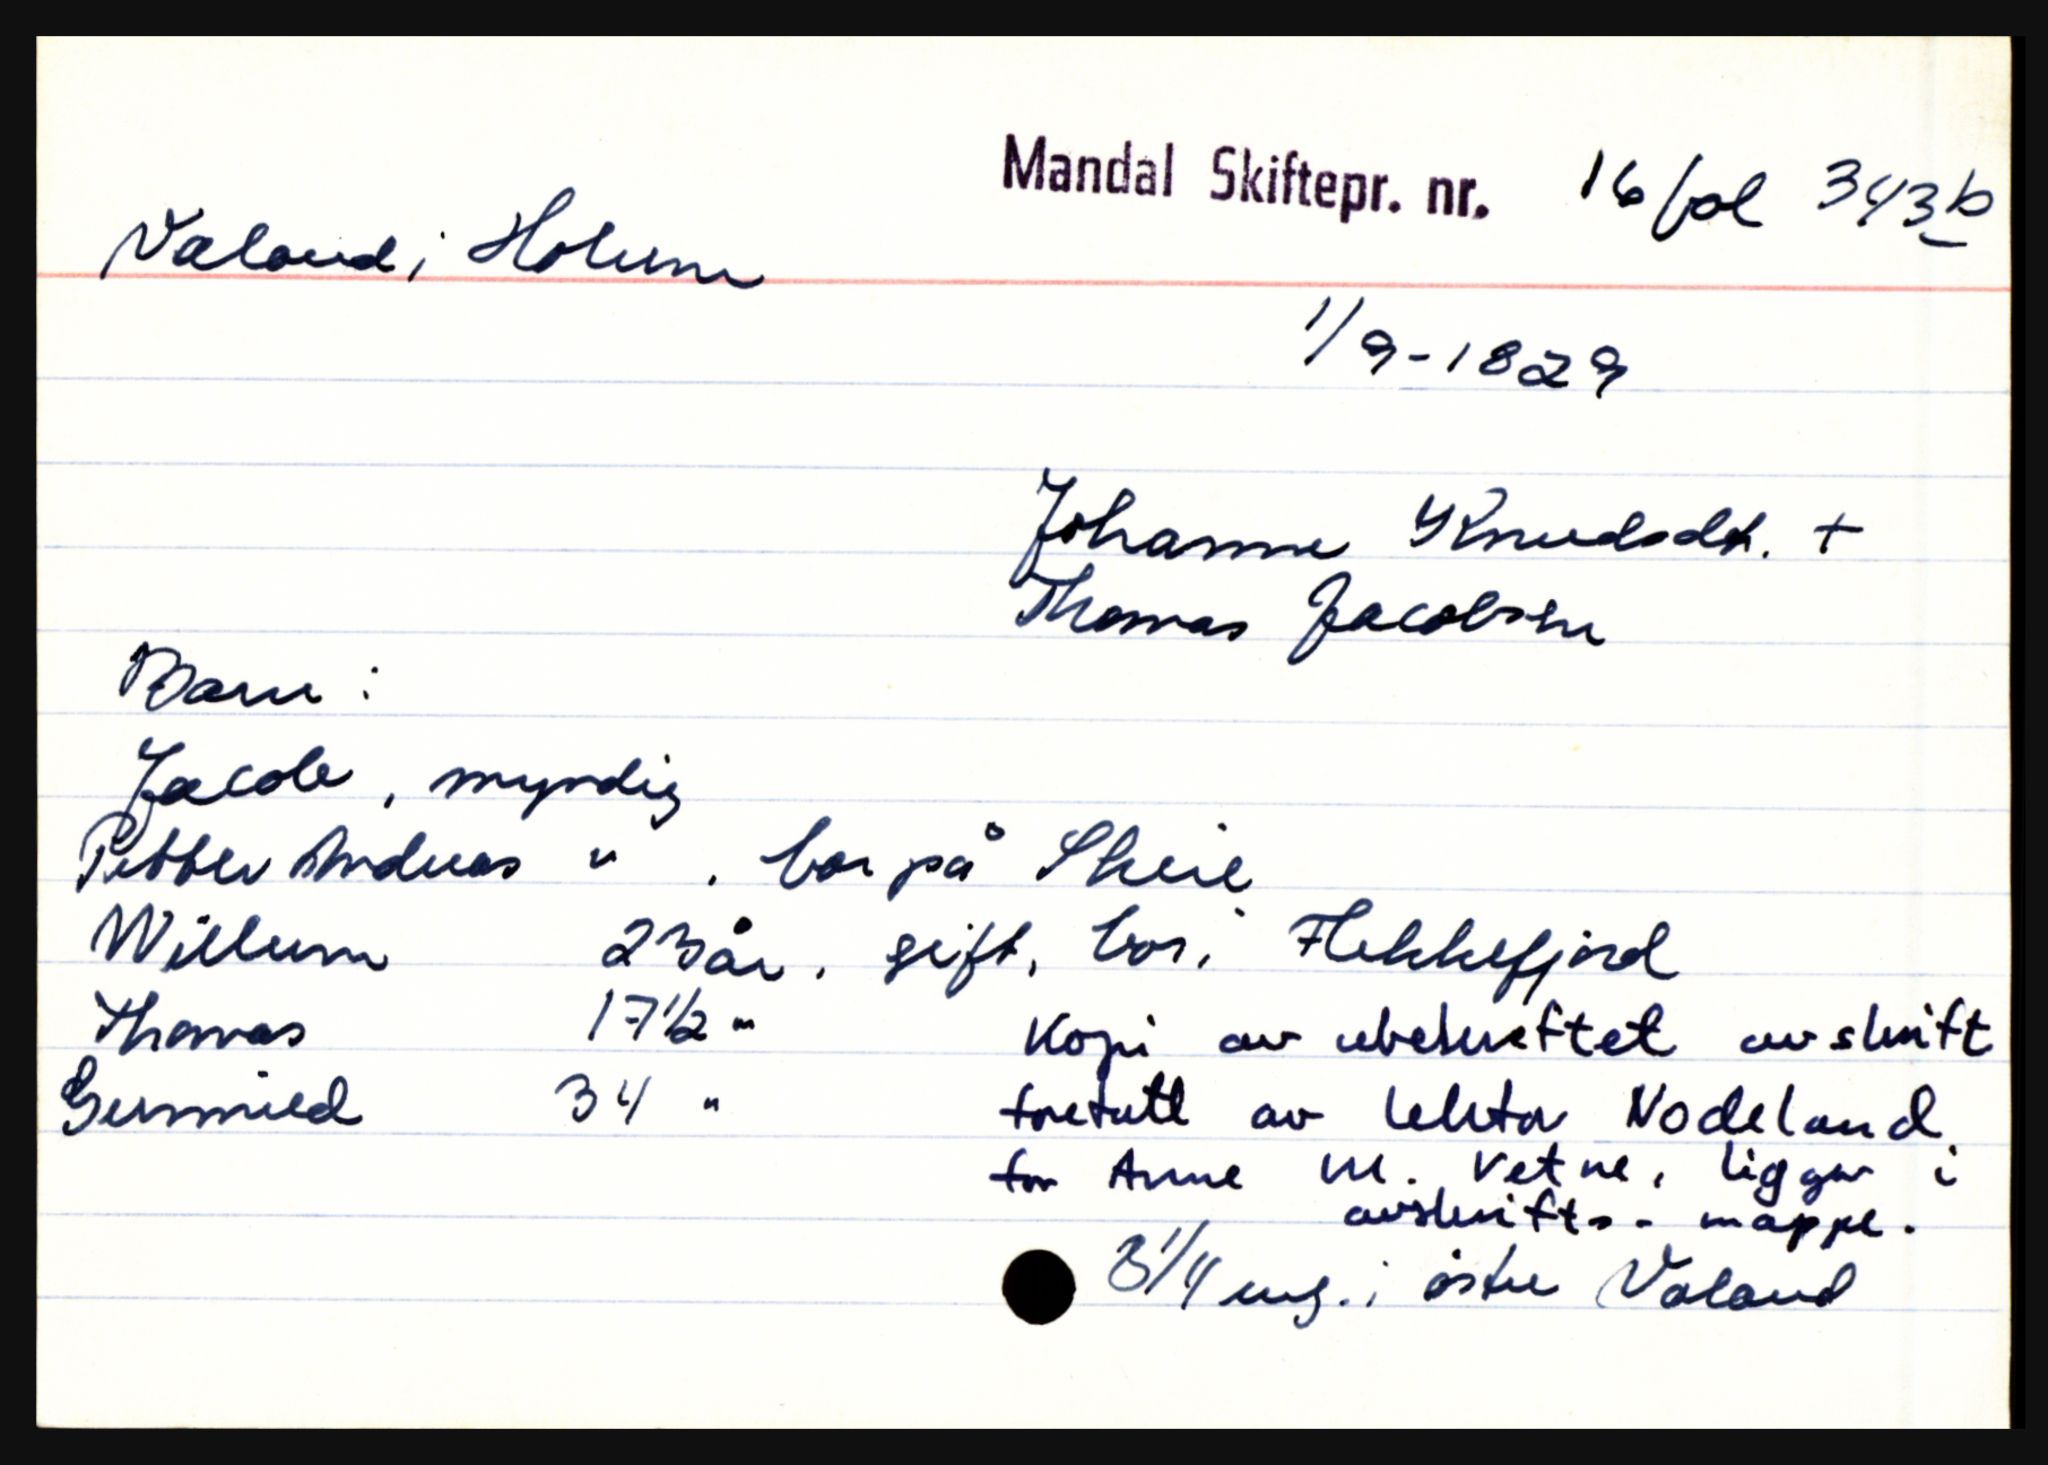 Mandal Skiftepr. nr. 16 fol 343b
Valand i Holum
1/9-1829
Johanne Knudsdt. +
Thomas Jacobsen
Barn :
Jacob, myndig
Petter Andreas " , bor på Skeie
Willum 23 år, gift, bor i Flekkefjord
Thomas 17 1/2 "
Gunnild 34 "
Kopi av ubekreftet avskrift
foretatt av lektor Nodeland
for Anne M. Vetne, ligger i
avskrifts-mappe.
3 1/4 eng. i østre Valand